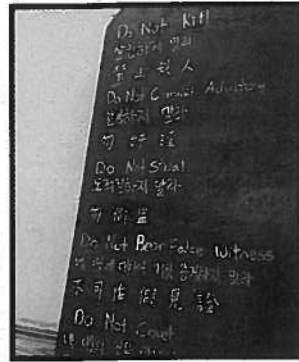 Do Not Kill
살인하지 말라
禁止殺人
Do Not Commit Adultery
간음하지 말라
勿奸淫
Do Not Steal
도적질하지 말라
勿偷盜
Do Not Bear False Witness
네 이웃에 대하여 거짓 증거하지 말라
不可作假見證
Do Not Covet